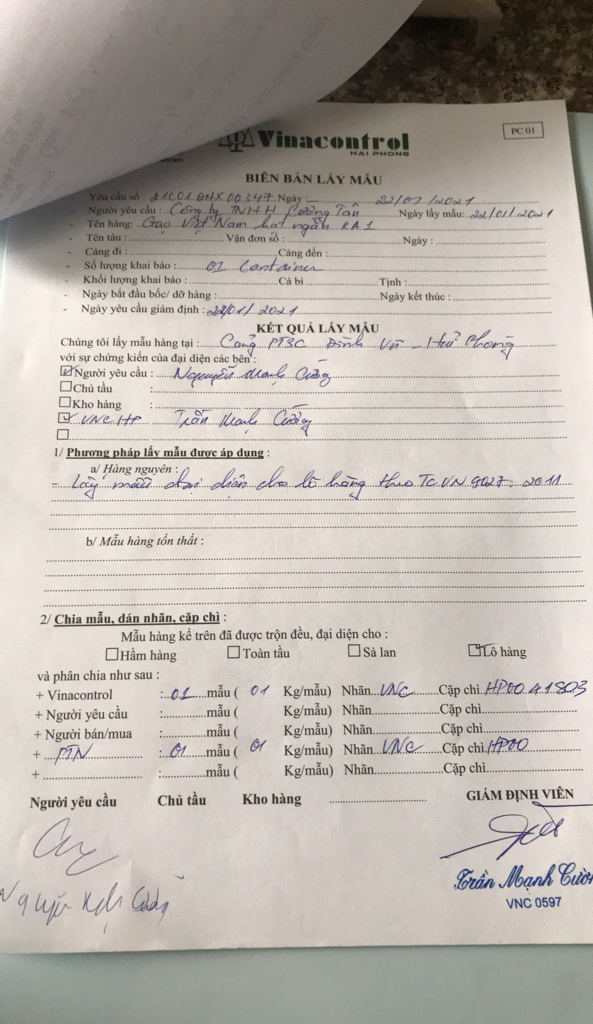 Vinacontrol
HAI PHONG
PC 01
BIÊN BẢN LẤY MẪU
Yêu cầu số : 21C01GHX00347 Ngày : 22/01/2021
- Người yêu cầu : Công ty TNHH Cường Tân Ngày lấy mẫu: 22/01/2021
- Tên hàng: Gạo Việt Nam hạt ngắn RA1
- Tên tàu : Vận đơn số : Ngày :
- Cảng đi : Cảng đến :
- Số lượng khai báo : 01 Container
- Khối lượng khai báo : Cả bì Tịnh :
- Ngày bắt đầu bốc/ dỡ hàng : Ngày kết thúc :
- Ngày yêu cầu giám định : 22/01/2021
KẾT QUẢ LẤY MẪU
Chúng tôi lấy mẫu hàng tại : Cảng PTSC Đình Vũ - Hải Phòng
với sự chứng kiến của đại diện các bên :
Người yêu cầu : Nguyễn Mạnh Cường
Chủ tầu :
Kho hàng :
VNC HP Trần Mạnh Cường
1/ Phương pháp lấy mẫu được áp dụng :
a/ Hàng nguyên :
- Lấy mẫu đại diện cho lô hàng theo TCVN 9027: 2011
b/ Mẫu hàng tổn thất :
2/ Chia mẫu, dán nhãn, cặp chì :
Mẫu hàng kể trên đã được trộn đều, đại diện cho :
Hầm hàng Toàn tầu Sà lan Lô hàng
và phân chia như sau :
+ Vinacontrol : 01 mẫu ( 01 Kg/mẫu) Nhãn VNC Cặp chì HP00 41803
+ Người yêu cầu : mẫu ( Kg/mẫu) Nhãn Cặp chì
+ Người bán/mua : mẫu ( Kg/mẫu) Nhãn Cặp chì
+ PTN : 01 mẫu ( 01 Kg/mẫu) Nhãn VNC Cặp chì HP00
+ : mẫu ( Kg/mẫu) Nhãn Cặp chì
Người yêu cầu Chủ tầu Kho hàng GIÁM ĐỊNH VIÊN
Trần Mạnh Cườn
VNC 0597